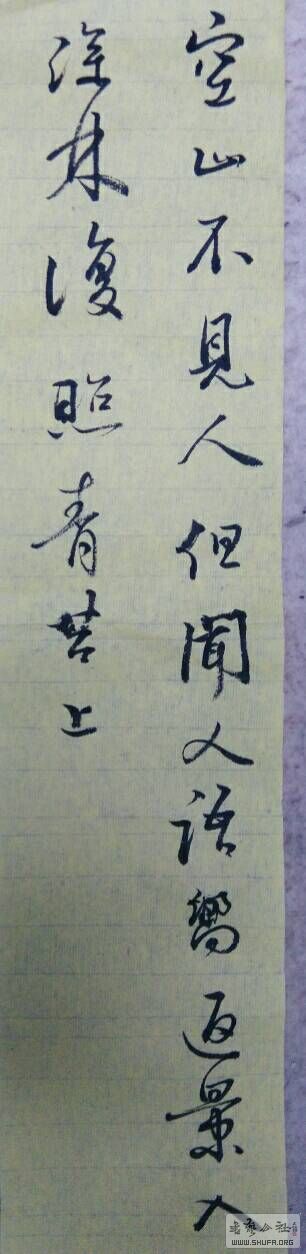 空山不見人但聞人话響返景入
深林復照青苔上
WWW.SHUFA.ORG